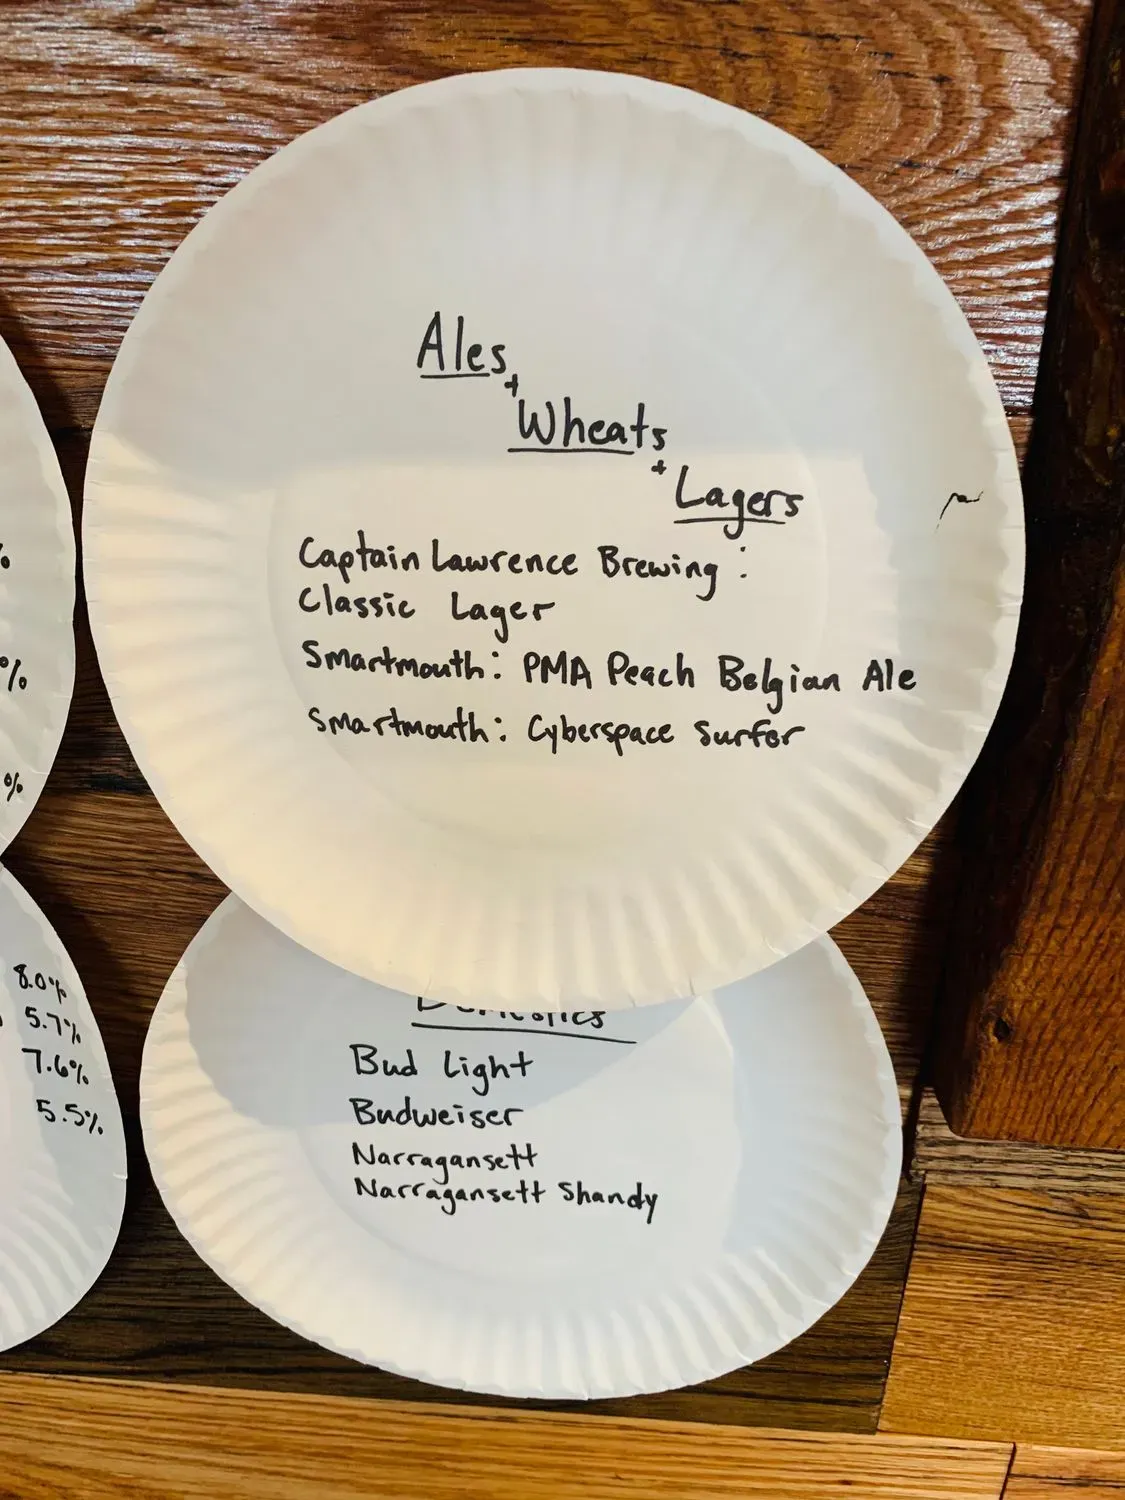 Ales
+
Wheats
+
Lagers
Captain Lawrence Brewing :
Classic Lager
Smartmouth: PMA Peach Belgian Ale
Smartmouth: Cyberspace Surfer
Domestics
Bud Light
Budweiser
Narragansett
Narragansett Shandy
%
%
%
8.0%
5.7%
7.6%
5.5%